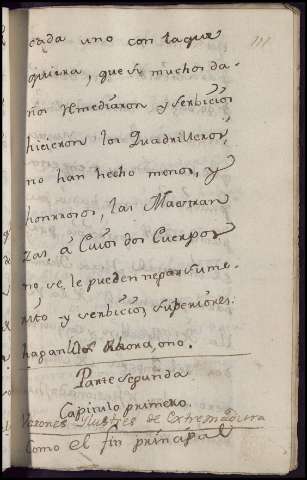 111
cada uno con la que
quiera, que si muchos da-
ños Rmediaron y serbicios
hicieron los Quadrilleros,
no han hecho menos, y
honrrosos, las Maestran
zas, á Cuios dos Cuerpos
no, se, le pueden negar su me-
rito y serbicios superiores.
haganlos Ahora, o no.
Parte segunda
Capitulo primero.
Varones Ilustres de Extremadura
Como el fin principal